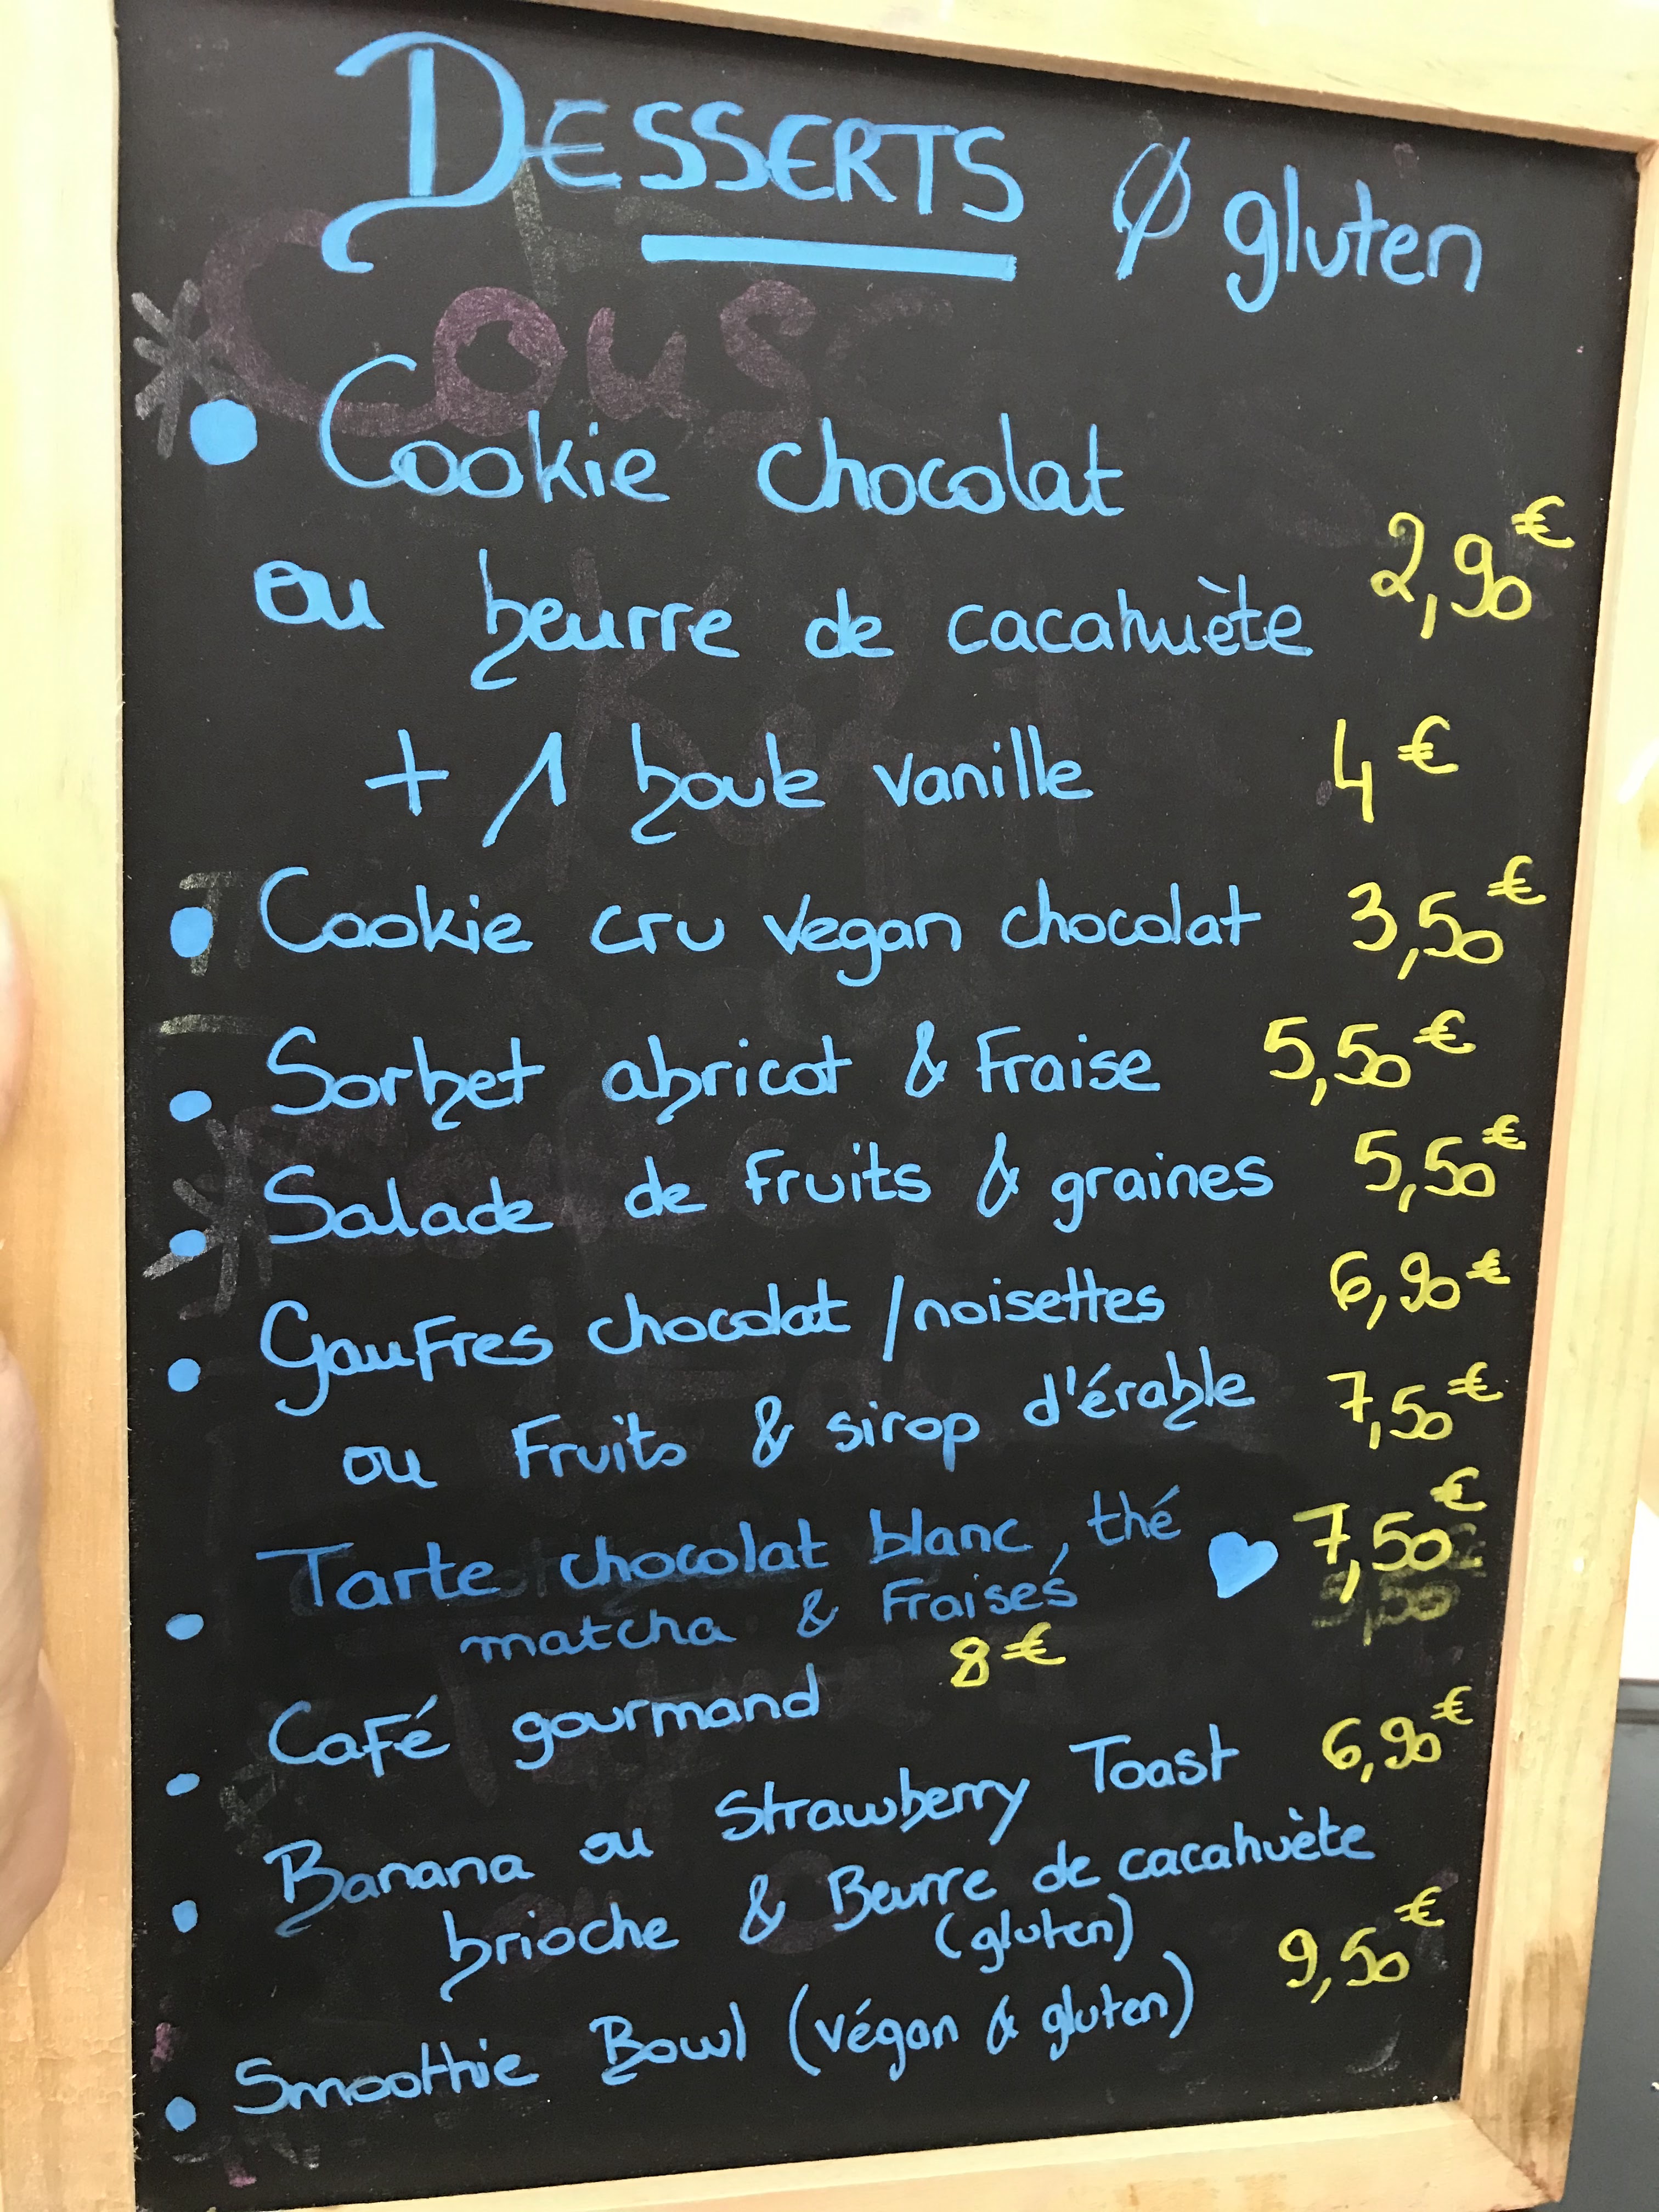 DESSERTS Ø gluten
Cous
• Cookie chocolat
ou beurre de cacahuète 2,90€
+ 1 boule vanille 4€
• Cookie cru vegan chocolat 3,50€
• Sorbet abricot & Fraise 5,50€
• Salade de Fruits & graines 5,50€
• Gaufres chocolat / noisettes 6,90€
ou Fruits & sirop d'érable 7,50€
• Tarte chocolat blanc, thé ♥ 7,50€
matcha & Fraises
• Café gourmand 8€
• Banana ou Strawberry Toast 6,90€
brioche & Beurre de cacahuète
(gluten)
• Smoothie Bowl (végan & gluten) 9,50€